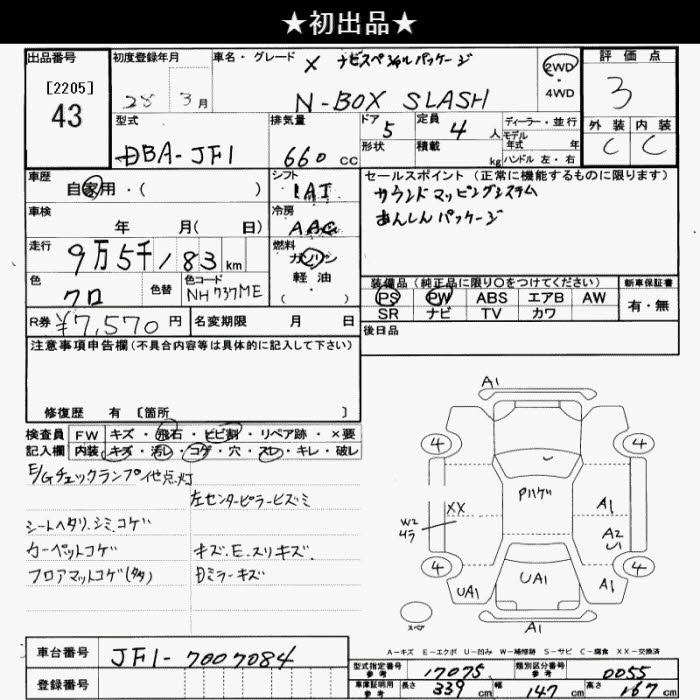 ★初出品★
出品番号
[2205]
43
初度登録年月
28 3月
車名・グレード
X ナビスペシャルパッケージ
N-BOX SLASH
2WD
・
4WD
評価点
3
外装 内装
C C
型式
DBA-JF1
排気量
660 cc
ドア 5
形状
定員 4 人
積載 kg
ディーラー・並行
モデル
年式 年
ハンドル 左・右
車歴
自家用・( )
シフト
IAT
車検
年 月( 日)
冷房
AAC
走行
9万5千183km
燃料
ガソリン
軽油
( )
色
クロ
色替
色コード
NH737ME
R券 ¥7,570円
名変期限 月 日
セールスポイント(正常に機能するものに限ります)
サウンドマッピングシステム
あんしんパッケージ
装備品(純正品に限り○をつけてください)
新車保証書
PS PW ABS エアB AW
SR ナビ TV カワ
有・無
後日品
注意事項申告欄(不具合内容等は具体的に記入して下さい)
修復歴 有 [箇所 ]
検査員
記入欄
FW キズ・飛石・ヒビ割・リペア跡・×要
内装 キズ・汚レ・コゲ・穴・スレ・キレ・破レ
E/Gチェックランプ他点灯
左センターピラーヒズミ
シートヘタリ.シミ.コゲ
カーペットコゲ
キズ.E.スリキズ.
フロアマットコゲ(タタ)
Dミラーキズ
A1
4
4
Pハゲ
XX
W2
ワラ
A1
A2
U1
4
4
UA1
UA1
A1
スペア
A1
A-キズ E-エクボ U-凹み W-補修跡 S-サビ C-腐食 XX-交換済
車台番号
JF1-7007084
登録番号
型式指定番号
参考
17075
類別区分番号
参考
0055
車庫証明用
参考
長さ 339 cm
幅 147 cm
高さ 167 cm